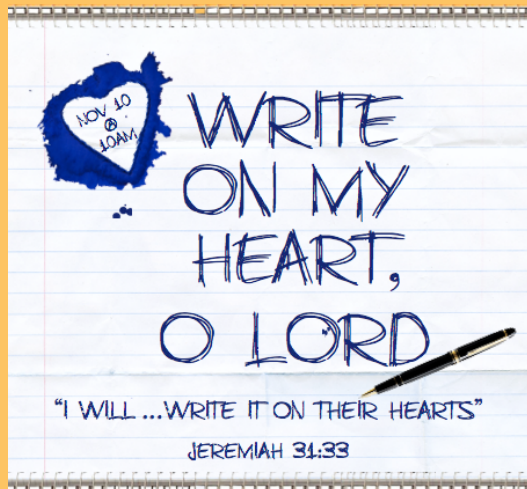 NOV 10
@
10AM
WRITE
ON MY
HEART,
O LORD
“I WILL ...WRITE IT ON THEIR HEARTS”
JEREMIAH 31:33